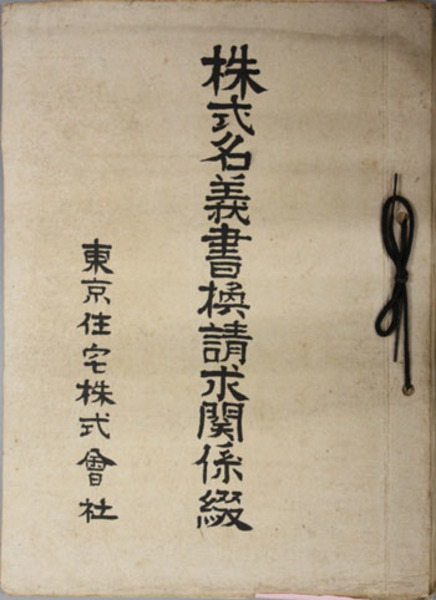 株式名義書換請求関係綴
東京住宅株式會社